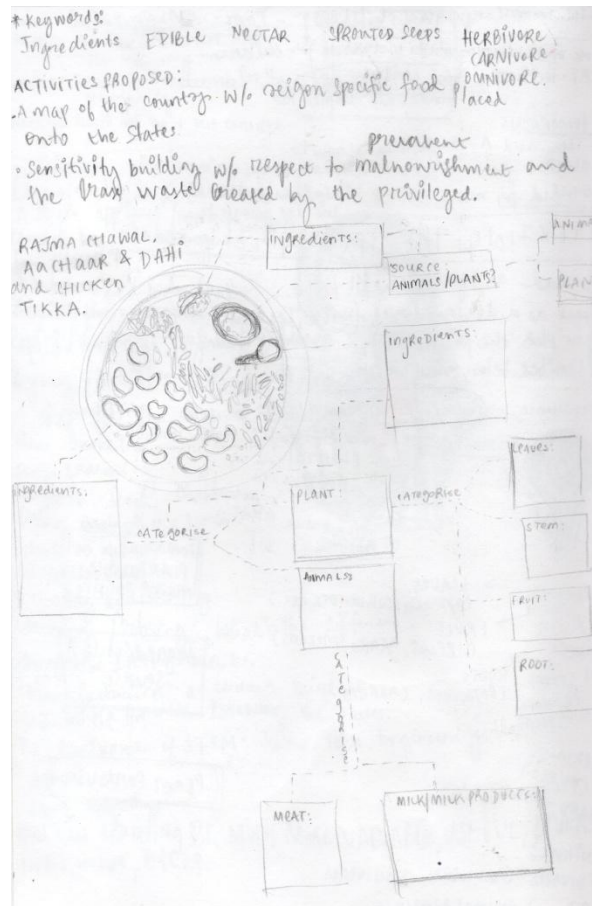 * Keywords:
Ingredients EDIBLE NECTAR SPROUTED SEEDS HERBIVORE
CARNIVORE.
OMNIVORE.
ACTIVITIES PROPOSED:
• A map of the country w/o reigon specific food placed
onto the States
prevalent
• Sensitivity building w/o respect to malnourishment and
the waste created by the privileged.
RAJMA CHAWAL.
AACHAAR & DAHI
and CHICKEN
TIKKA.
INgREDIENTS:
SOURCE:
ANIMALS/PLANTS?
ANIMA
PLAN
INgREDIENTS:
LEAVES:
INgREDIENTS:
PLANT:
CATEGORISE
STEM:
CATEGORISE
ANIMALS:
FRUIT:
ROOT:
CATEgORISE
MEAT:
MILK/MILK PRODUCTS: